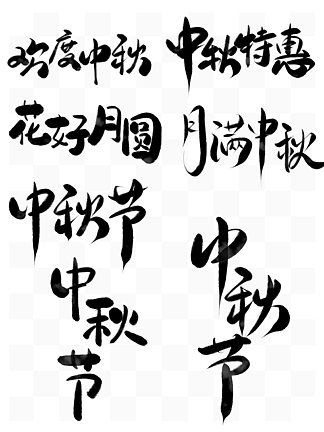 欢度中秋
中秋特惠
花好月圆
月满中秋
中秋节
中秋节
中秋节